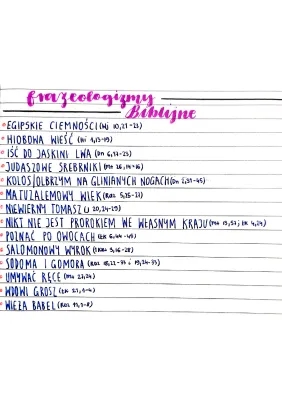 frazeologizmy
Biblijne
EGIPSKIE CIEMNOŚCI (Wj 10,21-23)
HIOBOWA WIEŚĆ (Hi 1,13-19)
IŚĆ DO JASKINI LWA (Dn 6,17-23)
JUDASZOWE SREBRNIKI (Mt 26,14-16)
KOLOS/OLBRZYM NA GLINIANYCH NOGACH (Dn 2,31-45)
MATUZALEMOWY WIEK (Rdz 5,25-27)
NIEWIERNY TOMASZ (J 20,24-29)
NIKT NIE JEST PROROKIEM WE WŁASNYM KRAJU (Mt 13,57; ŁK 4,24)
POZNAĆ PO OWOCACH (ŁK 6,44-45)
SALOMONOWY WYROK (1Krl 3,16-28)
SODOMA I GOMORA (Rdz 18,22-33 i 19,24-33)
UMYWAĆ RĘCE (Mt 27,24)
WDOWI GROSZ (ŁK 21,1-4)
WIEŻA BABEL (Rdz 11,1-8)